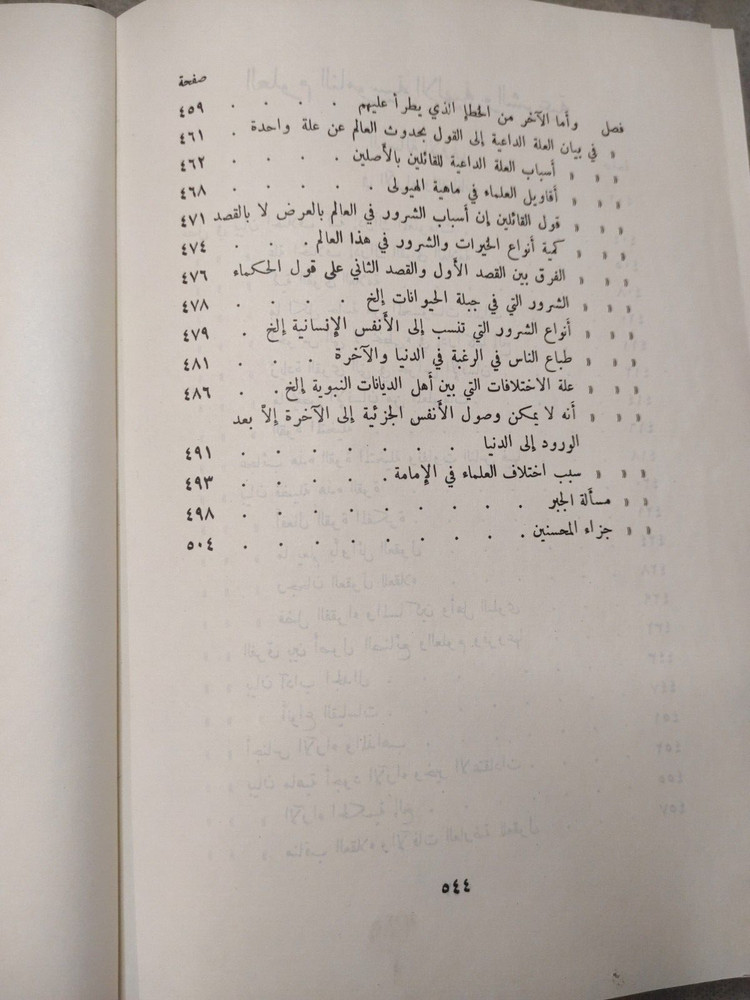 صفحة
فصل وأما الآخر من الخطإ الذي يطرأ عليهم . . . . ٤٥٩
» في بيان العلة الداعية إلى القول بحدوث العالم عن علة واحدة . ٤٦١
» » » أسباب العلة الداعية للقائلين بالأصلين . . . . ٤٦٢
» » » أقاويل العلماء في ماهية الهيولى . . . . ٤٦٨
» » » قول القائلين إن أسباب الشرور في العالم بالعرض لا بالقصد ٤٧١
» » » كمية أنواع الخيرات والشرور في هذا العالم . . . ٤٧٤
» » » الفرق بين القصد الأول والقصد الثاني على قول الحكماء ٤٧٦
» » » الشرور التي في جبلة الحيوانات إلخ . . . . ٤٧٨
» » » أنواع الشرور التي تنسب إلى الأنفس الإنسانية إلخ . ٤٧٩
» » » طباع الناس في الرغبة في الدنيا والآخرة . . . ٤٨١
» » » علة الاختلافات التي بين أهل الديانات النبوية إلخ . . ٤٨٦
» » » أنه لا يمكن وصول الأنفس الجزئية إلى الآخرة إلاّ بعد
الورود إلى الدنيا . . . . . . . ٤٩١
» » » سبب اختلاف العلماء في الإمامة . . . . . ٤٩٣
» » مسألة الجبر . . . . . . . . ٤٩٨
» » جزاء المحسنين . . . . . . . . ٥٠٤
٥٤٤